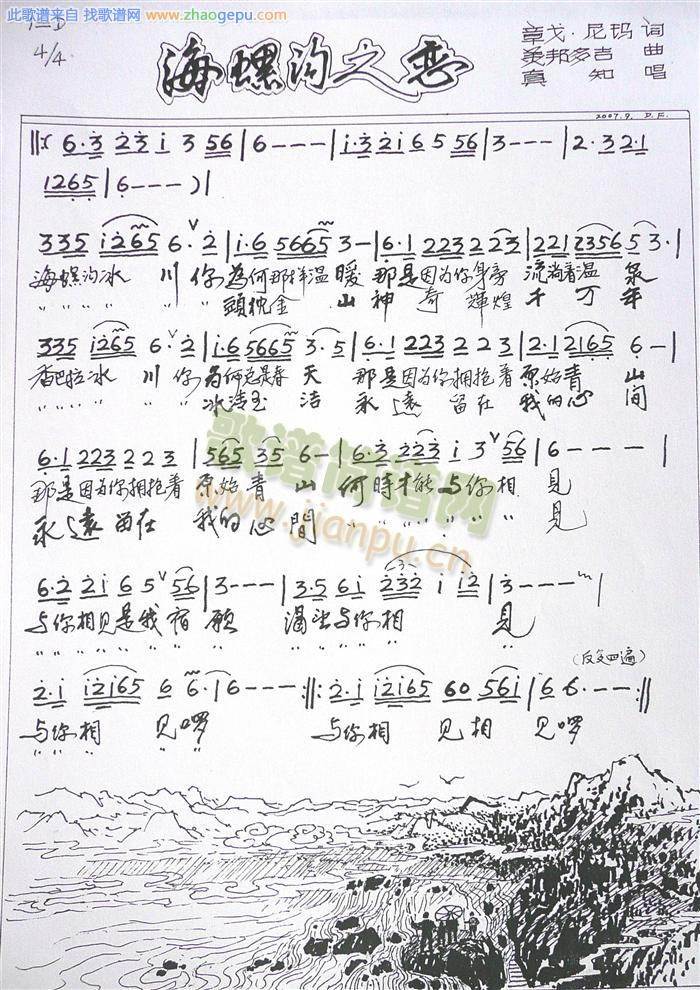 此歌谱来自 找歌谱网
www.zhaogepu.com
1=D
4/4
海螺沟之恋
章戈·尼玛 词
美邦多吉 曲
真 知 唱
2007.9. D.F.
‖: 6·3 23 i 3 56 | 6 - - - | i·3 2i 6 5 56 | 3 - - - | 2·3 2·1
1265 | 6 - - - ) |
335 i265 6·ⱽ2 | i·6 5665 3 - | 6·1 223 2 23 | 221 2356 5 3· |
海螺沟冰 川 你 为何那样温 暖 那是因为你身旁 流淌着温 泉
〃 〃 〃 〃 〃 〃 头枕金 山 神 奇 辉煌 千 万 年
335 i265 6·ⱽ2 | i·6 5665 3·5 | 6·1 223 2 2 3 | 2·1 2165 6 - |
香巴拉冰 川 你 为何总是春 天 那是因为你拥抱着 原始青 山
冰清玉 洁 永 远 留在 我的心 间
6·1 223 2 2 3 | 565 35 6 - | 6·3 223 i 3ⱽ56 | 6 - - - |
那是因为你拥抱着 原始青 山 何時才能 与你相 見
永 遠 留在 我的心 間 〃 〃 〃 〃 〃 〃 見
6·2 2i 6 5ⱽ56 | 3 - - - | 3·5 6i 232 i i2 | 3 - - - |
与你相见是我宿 願 渴望与你相 見
(反复四遍)
2·i i2i65 6 6· | 6 - - - :‖: 2·i i2i65 60 56i | 6 6· - - :‖
与你相 见啰 与你相 見相 见啰
歌谱简谱网
www.jianpu.cn